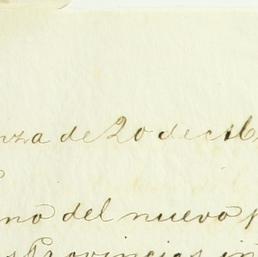 nza de 20 de
no del nuevo
Provincias in